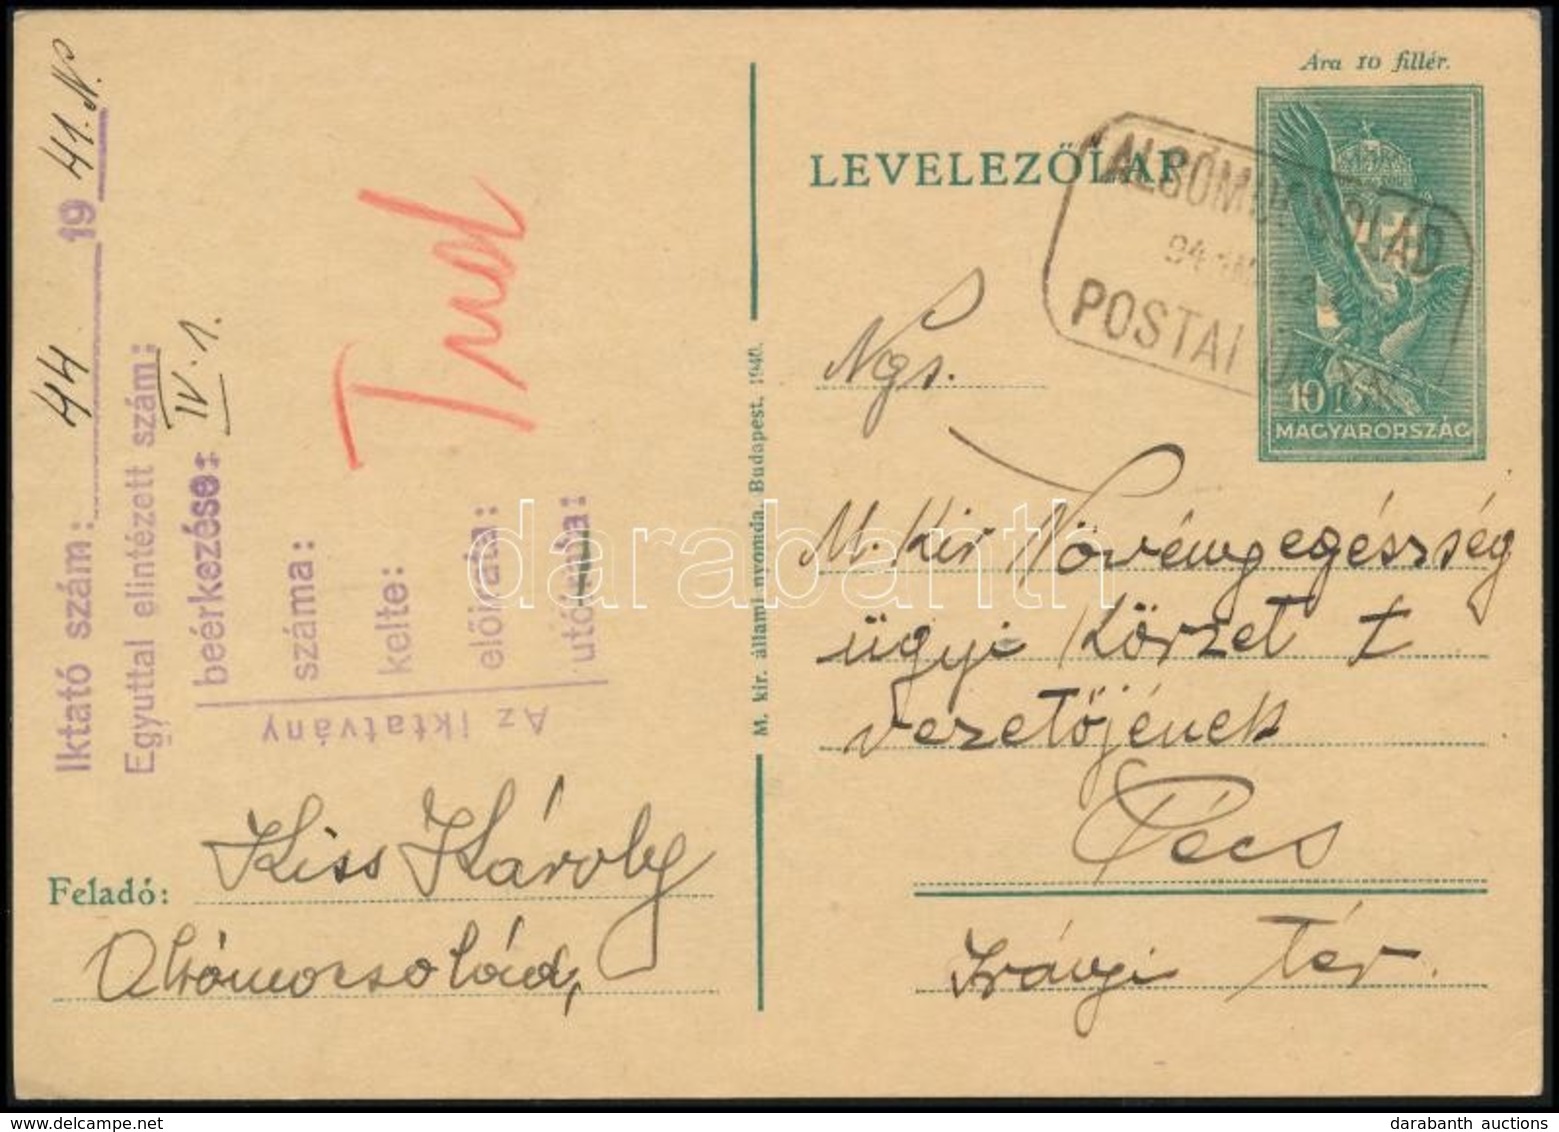 Ára 10 fillér.
LEVELEZŐLAP
ALSÓMOCSOLÁD
POSTAI
10
MAGYARORSZÁG
Ngs.
M. Kir Növényegészség
ügyi Körzet
vezetőjének
Pécs
Irányi Tér.
M. kir. állami nyomda, Budapest, 1940.
Iktató szám: 44 1941. N.
Egyuttal elintézett szám:
beérkezése: IV. 1.
száma:
kelte:
előirata:
utóirata:
Az iktatvány
Tud
Feladó: Kiss Károly
Alsómocsolád,
darabanth
darabanth auctions